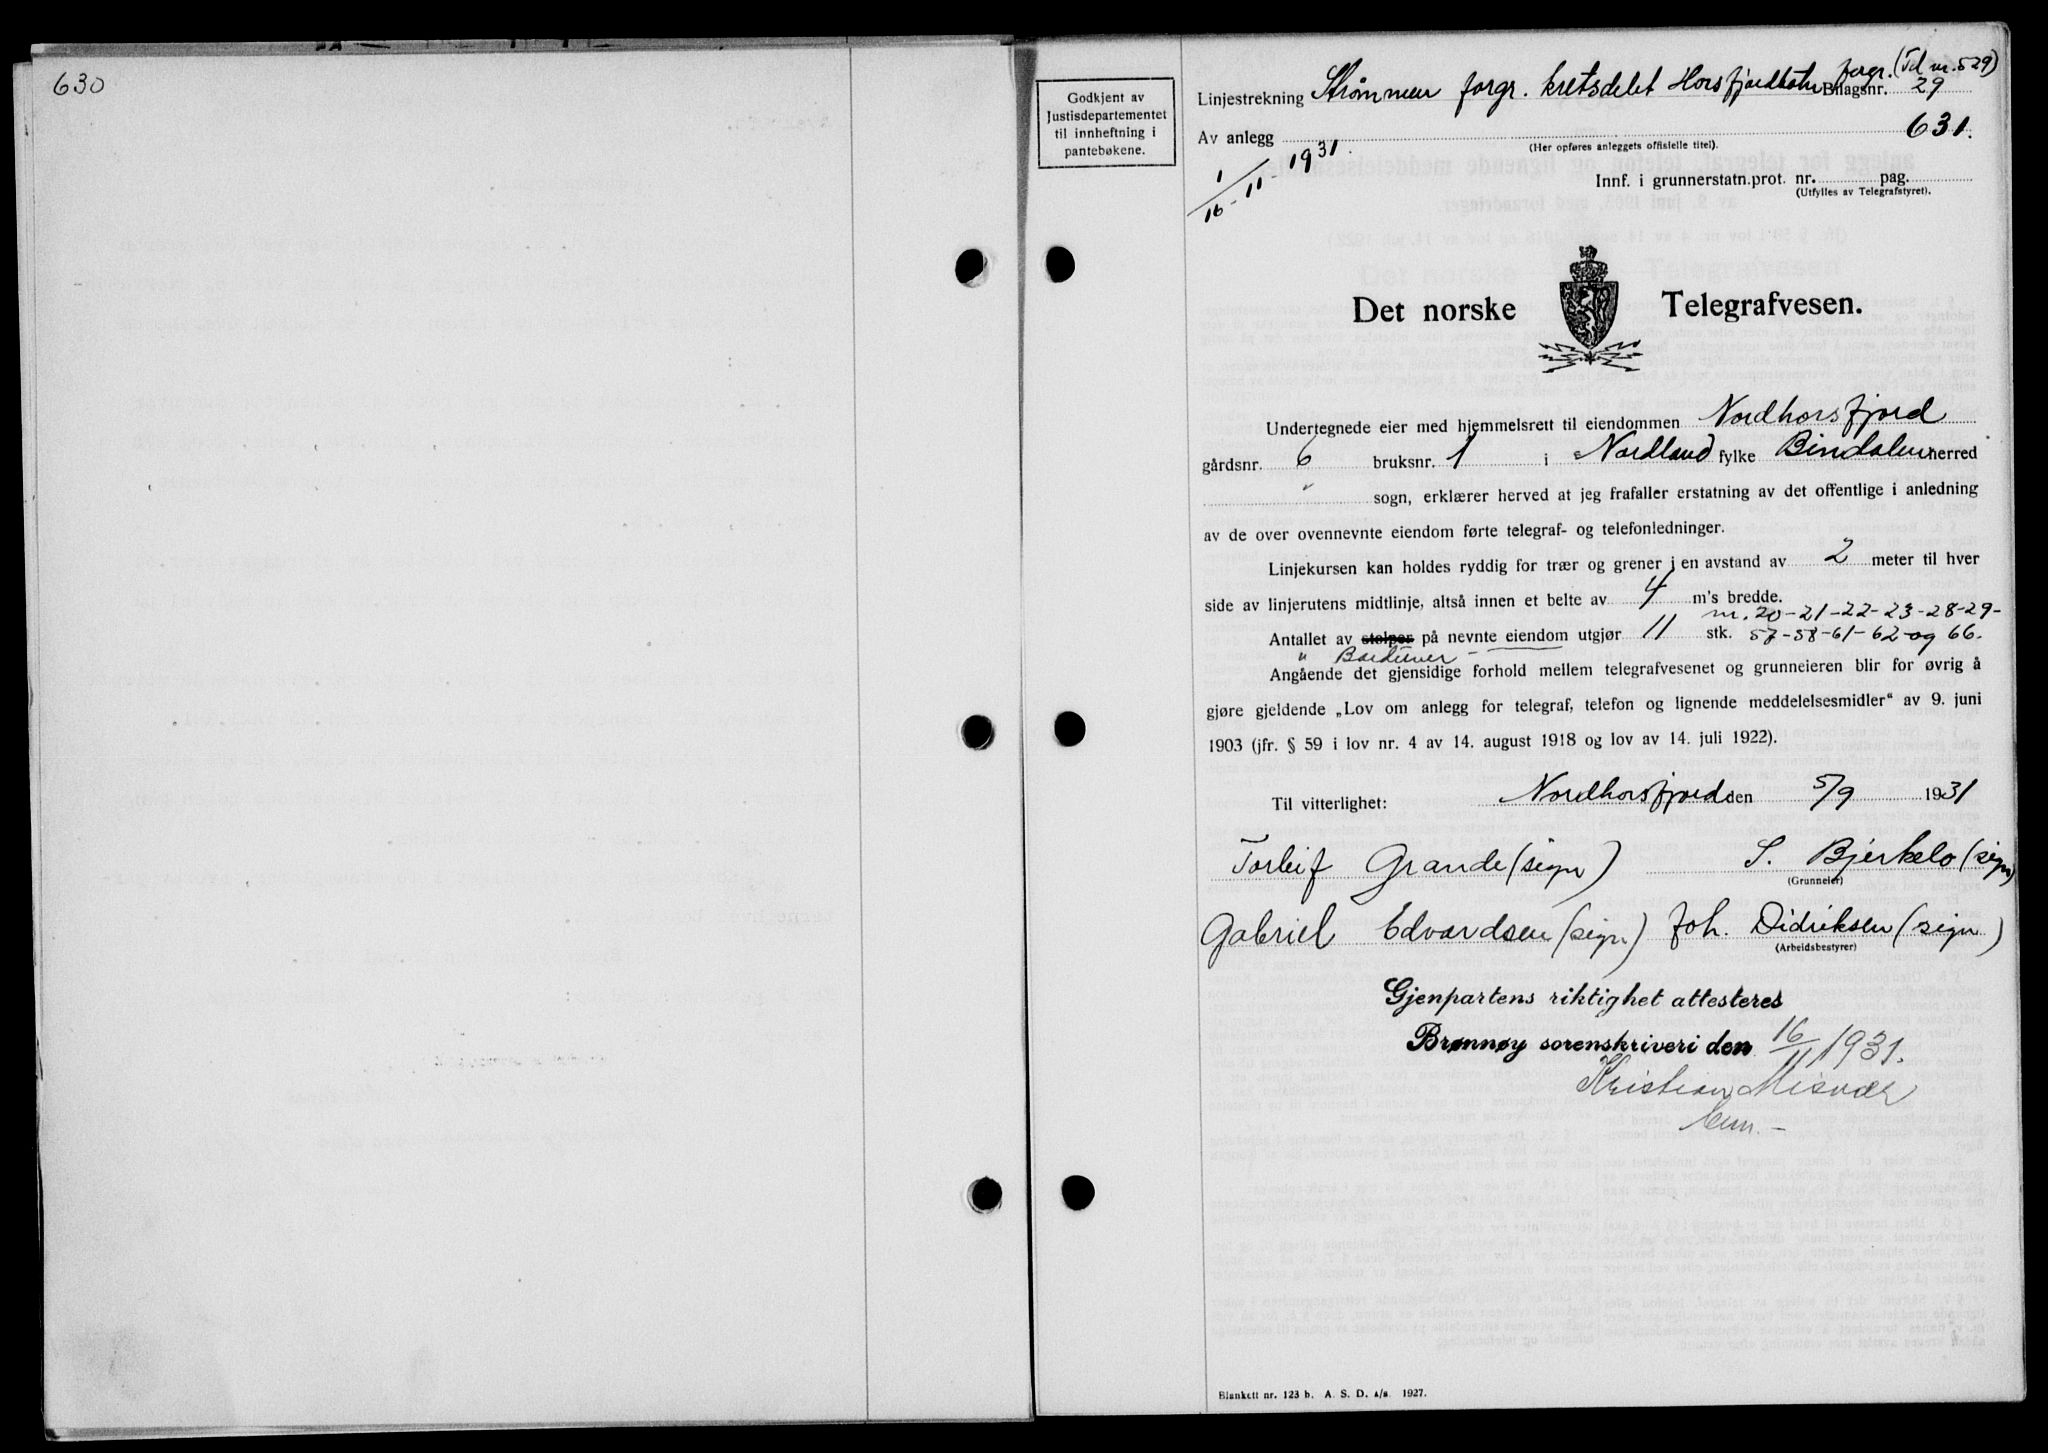 630
Godkjent av
Justisdepartementet
til innheftning i
pantebøkene.
(Td nr. 529)
Linjestrekning Strømmen forgr. kretsdelet Horsfjordbotn forgr. Bilagsnr. 29
Av anlegg 631.
(Her opføres anleggets offisielle titel).
1/16-11-1931.
Innf. i grunnerstatn.prot. nr. pag.
(Utfylles av Telegrafstyret).
Det norske Telegrafvesen.
Undertegnede eier med hjemmelsrett til eiendommen Nordhorsfjord
gårdsnr. 6 bruksnr. 1 i Nordland fylke Bindalen herred
sogn, erklærer herved at jeg frafaller erstatning av det offentlige i anledning
av de over ovennevnte eiendom førte telegraf- og telefonledninger.
Linjekursen kan holdes ryddig for trær og grener i en avstand av 2 meter til hver
side av linjerutens midtlinje, altså innen et belte av 4 m's bredde.
nr. 20-21-22-23-28-29-
Antallet av stolper på nevnte eiendom utgjør 11 stk. 57-58-61-62-og 66.
" Barduner -
Angående det gjensidige forhold mellem telegrafvesenet og grunneieren blir for øvrig å
gjøre gjeldende „Lov om anlegg for telegraf, telefon og lignende meddelelsesmidler" av 9. juni
1903 (jfr. § 59 i lov nr. 4 av 14. august 1918 og lov av 14. juli 1922).
Til vitterlighet: Nordhorsfjord den 5/9 1931
Torleif Grande (sign) S. Bjerkelo (sign)
(Grunneier)
Gabriel Edvardsen (sign) Joh. Didriksen (sign)
(Arbeidsbestyrer)
Gjenpartens riktighet attesteres
Brønnøy sorenskriveri den 16/11 1931.
Kristian Misvær
Blankett nr. 123 b. A. S. D. a/s 1927.